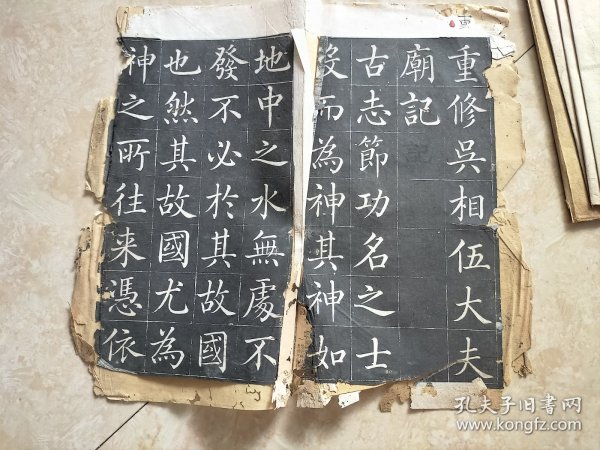 重修吳相伍大夫
廟記
古志節功名之士
沒而為神其神如
地中之水無處不
發不必於其故國
也然其故國尤為
神之所往来憑依
孔夫子旧书网
www.kongfz.com